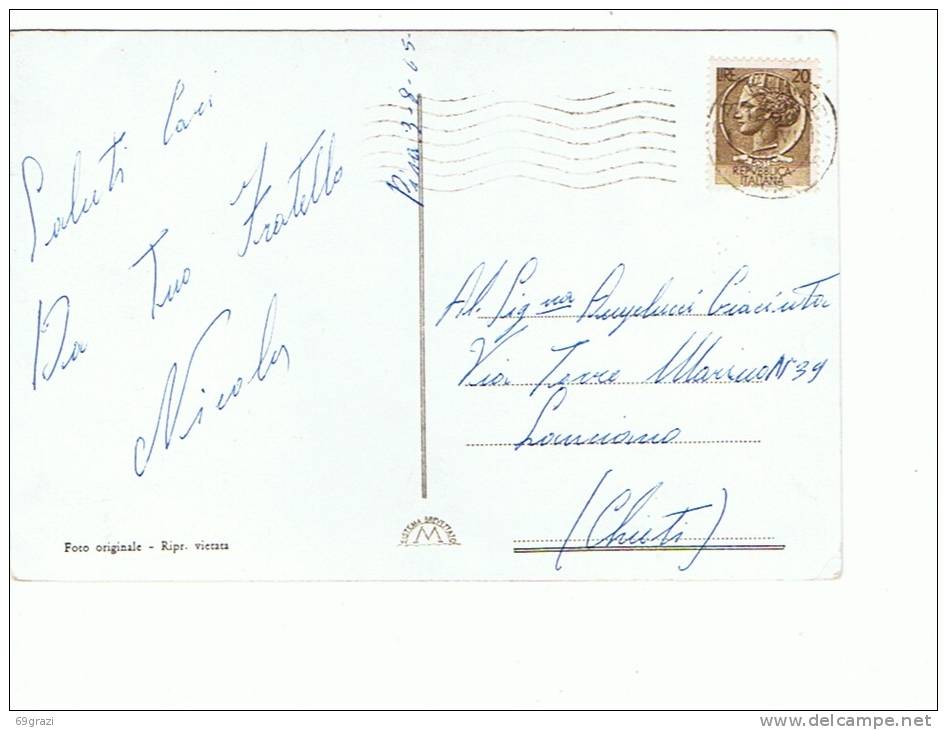 Saluti Cari
Da Tuo Fratello
Nicola
Pisa 3-8-65
LIRE 20
REPVBBLICA
ITALIANA
Al. Sig.na Angelucci Giacinta
Via Torre Marino N 39
Lanciano
(Chieti)
SISTEMA BREVETTATO
M
Foto originale - Ripr. vietata
69grazi
www.delcampe.net